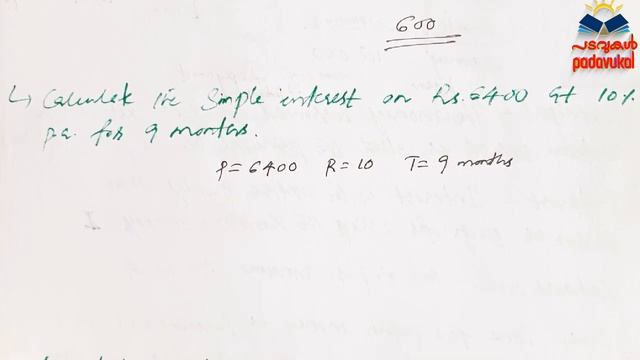 600
പടവുകൾ
padavukal
↳ Calculate the Simple interest on Rs. 6400 at 10%
p.a. for 9 months.
P = 6400 R = 10 T = 9 months